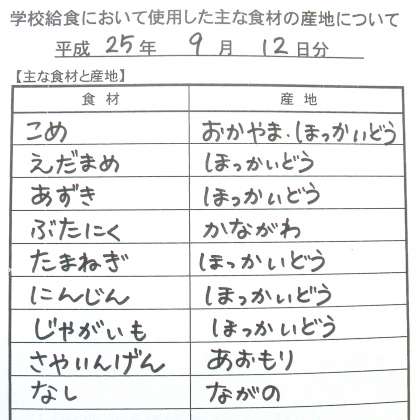 学校給食において使用した主な食材の産地について
平成 25 年 9 月 12 日分
【主な食材と産地】
食材 産地
こめ おかやま・ほっかいどう
えだまめ ほっかいどう
あずき ほっかいどう
ぶたにく かながわ
たまねぎ ほっかいどう
にんじん ほっかいどう
じゃがいも ほっかいどう
さやいんげん あおもり
なし ながの